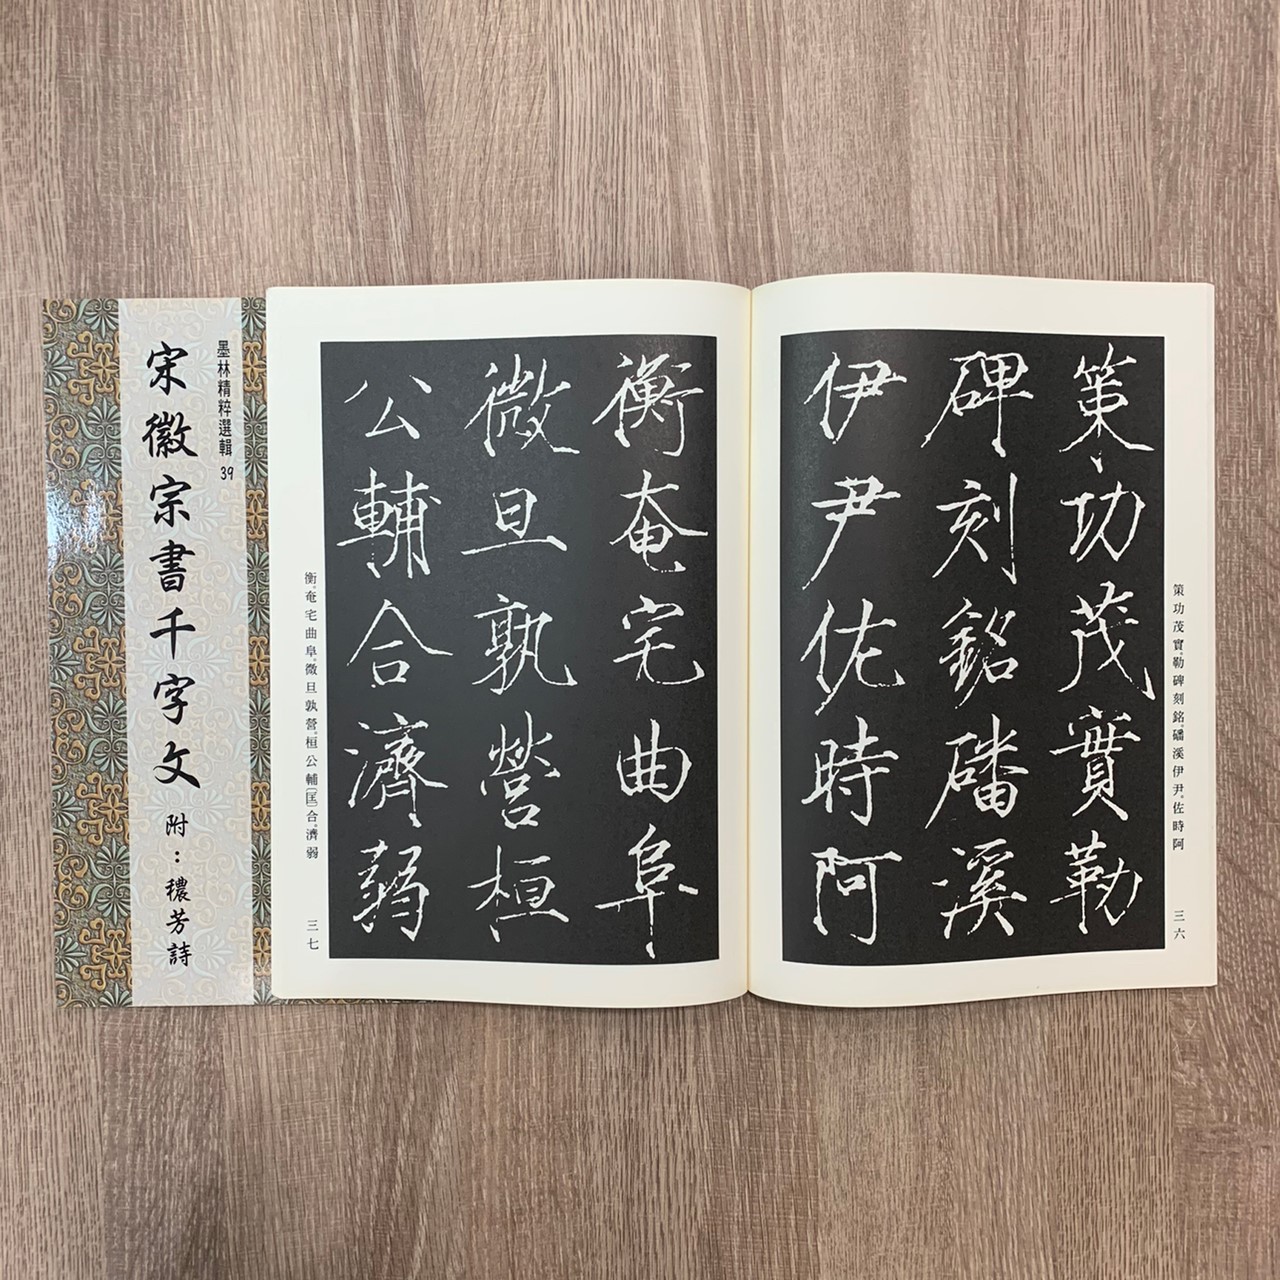 墨林精粹選輯 39
宋徽宗書千字文 附：穠芳詩
策功茂實勒
碑刻銘磻溪
伊尹佐時阿
策功茂實。勒碑刻銘。磻溪伊尹。佐時阿
三六
衡奄宅曲阜
微旦孰營桓
公輔合濟弱
衡。奄宅曲阜。微旦孰營。桓公輔〔匡〕合。濟弱
三七